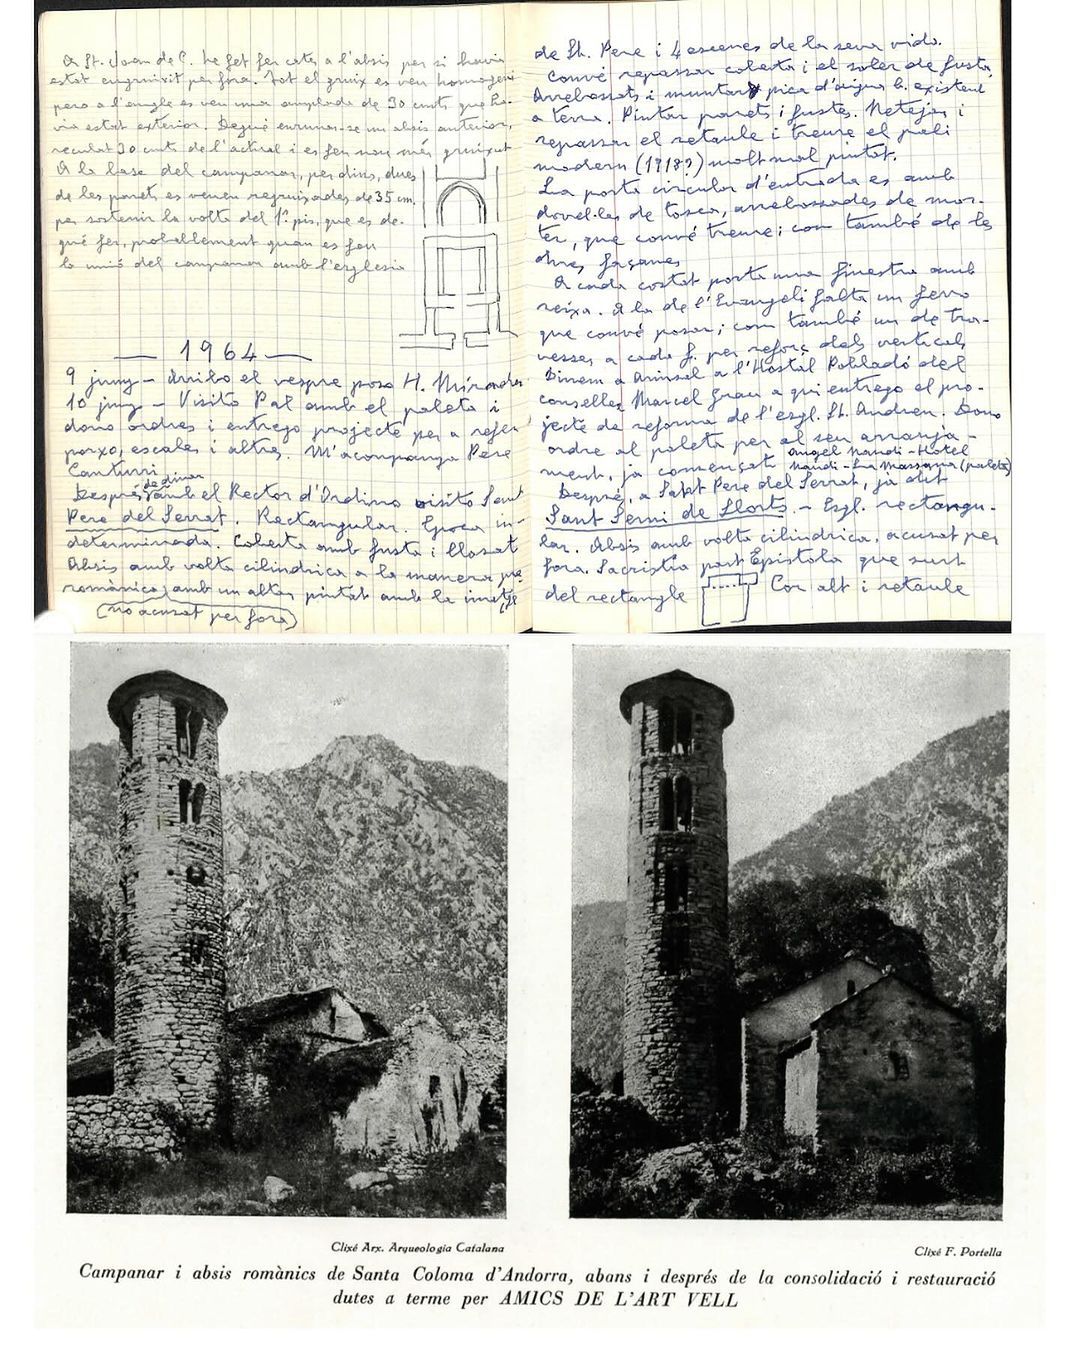 A St. Joan de C. he fet fer cates a l'absis per si havia
estat engruixit per fora. Tot el gruix es veu homogeni
pero a l'angle es veu una amplada de 30 cmts. que ha-
via estat exterior. Degué enrunar-se un absis anterior,
reculat 30 cmts de l'actual i es feu nou més gruixut
A la base del campanar, per dins, dues
de les parets es veuen regruixades de 35 cm.
per sostenir la volta del 1er. pis, que es de-
gué fer, probablement quan es feu
la unió del campanar amb l'església
— 1964 —
9 juny — Arribo el vespre poso H. Mirador
10 juny — Visito Pal amb el paleta i
dono ordres i entrego projecte per a refer
porxo, escales i altres. M'acompanya Pere
Canturri
de dinar
Després amb el Rector d'Ordino visito Sant
Pere del Serrat. Rectangular. Epoca in-
determinada. Coberta amb fusta i llosat
Absis amb volta cilindrica a la manera pre
romànica, amb un altar pintat amb la imatge
(no acusat per fora)
de St. Pere i 4 escenes de la seva vida.
Convé repassar coberta i el soler de fusta,
Arrebossats i muntar pica d'aigua b. existent
a terra. Pintar parets i fustes. Netejar i
repassar el retaule i treure el pali
modern (1918?) molt mal pintat.
La porta circular d'entrada es amb
dovel·les de tosca, arrebossades de mor-
ter, que convé treure; com també de les
altres façanes
A cada costat porta una finestra amb
reixa. A la de l'Evangeli falta un ferro
que convé posar; com també un de tra-
vesser a cada f. per reforç dels verticals
Dinem a Arinsal a l'Hostal Poblado del
conseller Marcel Grau a qui entrego el pro-
jecte de reforma de l'esgl. St. Andreu. Dono
ordre al paleta per al seu arranja-
Angel Nandi-Hotel
ment, ja començat Nandi-La Massana (paleta)
Després, a Sant Pere del Serrat, ja dit
Sant Serni de Llorts. — Esgl. rectangu-
lar. Absis amb volta cilindrica, acusat per
fora. Sacristia part Epistola que surt
del rectangle Cor alt i retaule
Clixé Arx. Arqueologia Catalana
Clixé F. Portella
Campanar i absis romànics de Santa Coloma d'Andorra, abans i després de la consolidació i restauració
dutes a terme per AMICS DE L'ART VELL